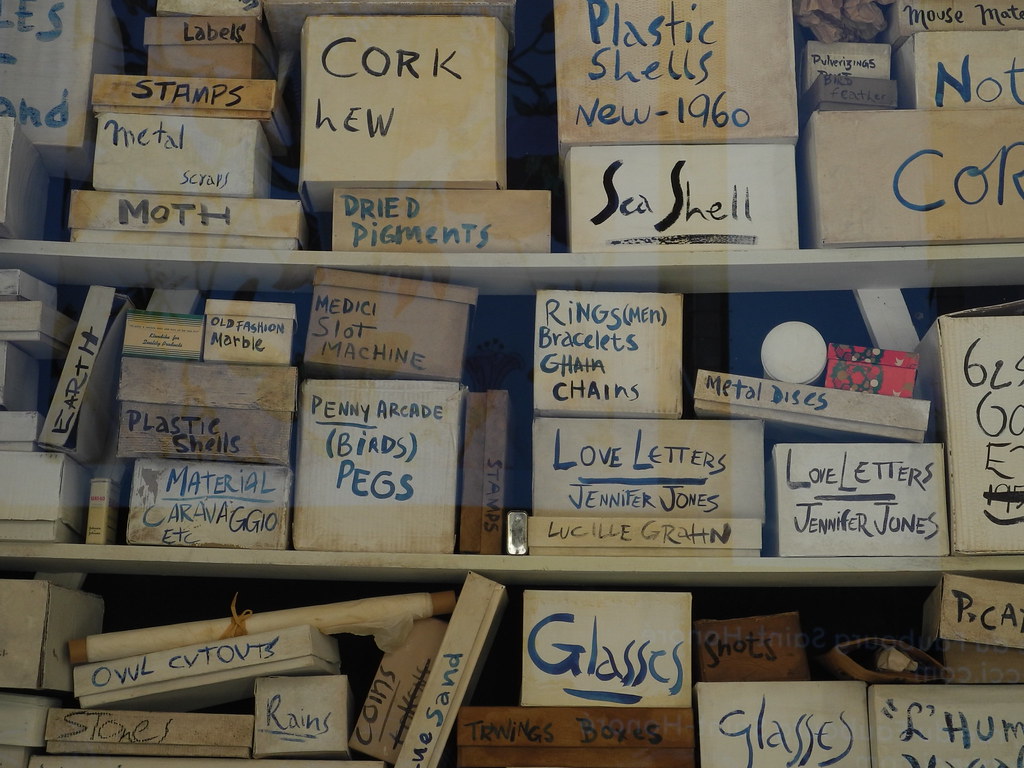 and
Labels
STAMPS
Metal
scraps
MOTH
CORK
NEW
DRIED
PIGMENTS
Plastic
Shells
New-1960
Sea Shell
Pulverizings
feather
Mouse Mate
Not
COR
EARTH
OLD FASHION
Marble
Plastic
Shells
MATERIAL
CARAVAGGIO
ETC
MEDICI
Slot
MACHINE
PENNY ARCADE
(BIRDS)
PEGS
STAMPS
RINGS(MEN)
Bracelets
CHAINS
LOVE LETTERS
JENNIFER JONES
LUCILLE GRAHN
METAL DISCS
LOVE LETTERS
JENNIFER JONES
OWL CUTOUTS
STONES
Rains
COINS
Sand
Glasses
BOXES
shots
Glasses
"L'HUM